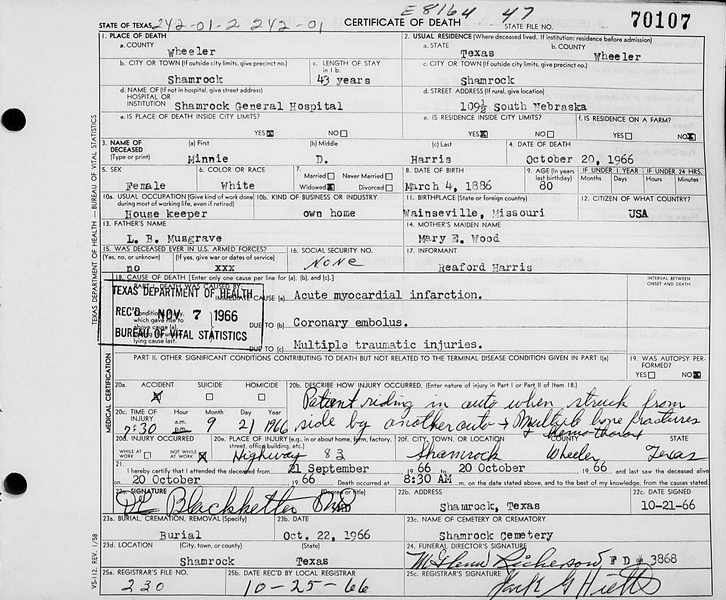 E8164 47
STATE OF TEXAS 242-01-2 242-01 CERTIFICATE OF DEATH STATE FILE NO. 70107
1. PLACE OF DEATH 2. USUAL RESIDENCE (Where deceased lived. If institution: residence before admission)
a. COUNTY Wheeler a. STATE Texas b. COUNTY Wheeler
b. CITY OR TOWN (If outside city limits, give precinct no.) Shamrock c. LENGTH OF STAY in 1 b. 43 years c. CITY OR TOWN (If outside city limits, give precinct no.) Shamrock
d. NAME OF (If not in hospital, give street address) HOSPITAL OR INSTITUTION Shamrock General Hospital d. STREET ADDRESS (If rural, give location) 109½ South Nebraska
e. IS PLACE OF DEATH INSIDE CITY LIMITS? YES X NO e. IS RESIDENCE INSIDE CITY LIMITS? YES X NO f. IS RESIDENCE ON A FARM? YES NO X
3. NAME OF DECEASED (Type or print) (a) First Minnie (b) Middle D. (c) Last Harris 4. DATE OF DEATH October 20, 1966
5. SEX Female 6. COLOR OR RACE White 7. Married Never Married Widowed X Divorced 8. DATE OF BIRTH March 4, 1886 9. AGE (In years last birthday) 80 IF UNDER 1 YEAR Months Days IF UNDER 24 HRS. Hours Min.
10a. USUAL OCCUPATION (Give kind of work done during most of working life, even if retired) House keeper 10b. KIND OF BUSINESS OR INDUSTRY own home 11. BIRTHPLACE (State or foreign country) Wainseville, Missouri 12. CITIZEN OF WHAT COUNTRY? USA
13. FATHER'S NAME L. B. Musgrave 14. MOTHER'S MAIDEN NAME Mary E. Wood
15. WAS DECEASED EVER IN U.S. ARMED FORCES? (Yes, no, or unknown) no (If yes, give war or dates of service) xxx 16. SOCIAL SECURITY NO. None 17. INFORMANT Reaford Harris
18. CAUSE OF DEATH [Enter only one cause per line for (a), (b), and (c).] INTERVAL BETWEEN ONSET AND DEATH
PART I. DEATH WAS CAUSED BY: IMMEDIATE CAUSE (a) Acute myocardial infarction.
DUE TO (b) Coronary embolus.
DUE TO (c) Multiple traumatic injuries.
TEXAS DEPARTMENT OF HEALTH
REC'D NOV 7 1966
BUREAU OF VITAL STATISTICS
PART II. OTHER SIGNIFICANT CONDITIONS CONTRIBUTING TO DEATH BUT NOT RELATED TO THE TERMINAL DISEASE CONDITION GIVEN IN PART I(a) 19. WAS AUTOPSY PERFORMED? YES NO X
20a. ACCIDENT X SUICIDE HOMICIDE 20b. DESCRIBE HOW INJURY OCCURRED. (Enter nature of injury in Part I or Part II of Item 18.)
Patient riding in auto when struck from
20c. TIME OF INJURY Hour 7:30 a.m. p.m. Month 9 Day 21 Year 1966 side by another auto → Multiple bone fractures
& Hemothorax
20d. INJURY OCCURRED WHILE AT WORK NOT WHILE AT WORK X 20e. PLACE OF INJURY (e.g., in or about home, farm, factory, street, office building, etc.) Highway 83 20f. CITY, TOWN, OR LOCATION Shamrock COUNTY Wheeler STATE Texas
21. I hereby certify that I attended the deceased from 21 September 1966 to 20 October 1966 and last saw the deceased alive
on 20 October 1966 Death occurred at 8:30 AM m. on the date stated above, and to the best of my knowledge, from the causes stated.
22a. SIGNATURE (Degree or title) Blackketter 22b. ADDRESS Shamrock, Texas 22c. DATE SIGNED 10-21-66
23a. BURIAL, CREMATION, REMOVAL (Specify) Burial 23b. DATE Oct. 22, 1966 23c. NAME OF CEMETERY OR CREMATORY Shamrock Cemetery
23d. LOCATION (City, town, or county) Shamrock (State) Texas 24. FUNERAL DIRECTOR'S SIGNATURE Glenn Richerson F D # 3868
25a. REGISTRAR'S FILE NO. 230 25b. DATE REC'D BY LOCAL REGISTRAR 10-25-66 25c. REGISTRAR'S SIGNATURE Jack G.
TEXAS DEPARTMENT OF HEALTH — BUREAU OF VITAL STATISTICS
MEDICAL CERTIFICATION
VS-112 REV. 1/58